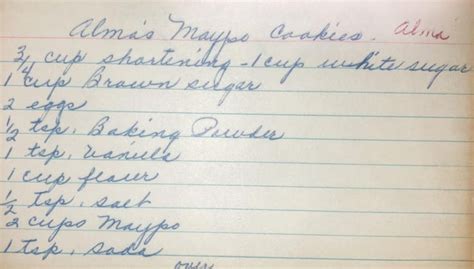 Alma's Maypo Cookies. Alma
3/4 cup shortening - 1 cup white sugar
1 cup Brown sugar
2 eggs
1/2 tsp. Baking Powder
1 tsp. vanila
1 cup flour
1/2 tsp. salt
2 cups Maypo
1 tsp. soda
over